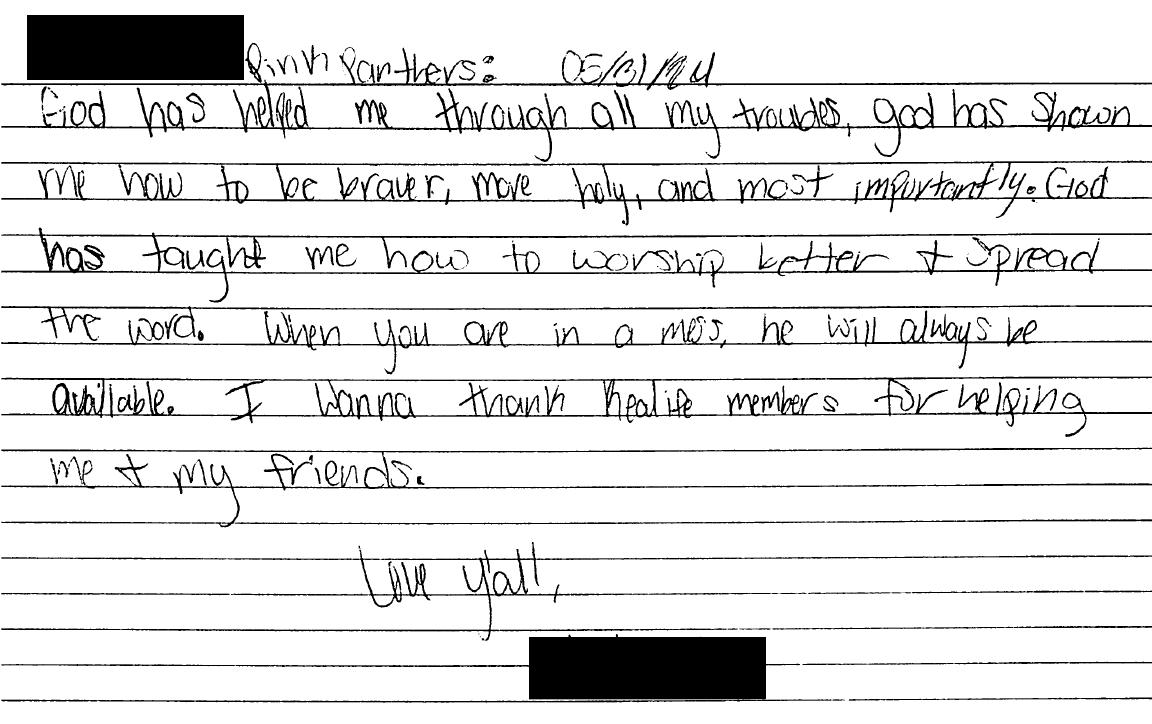 Pink Panthers: 05/31/24
God has helped me through all my troubles, god has shown
me how to be braver, more holy, and most importantly. God
has taught me how to worship better + spread
the word. When you are in a mess, he will always be
available. I wanna thank Realife members for helping
me + my friends.
Love y'all,